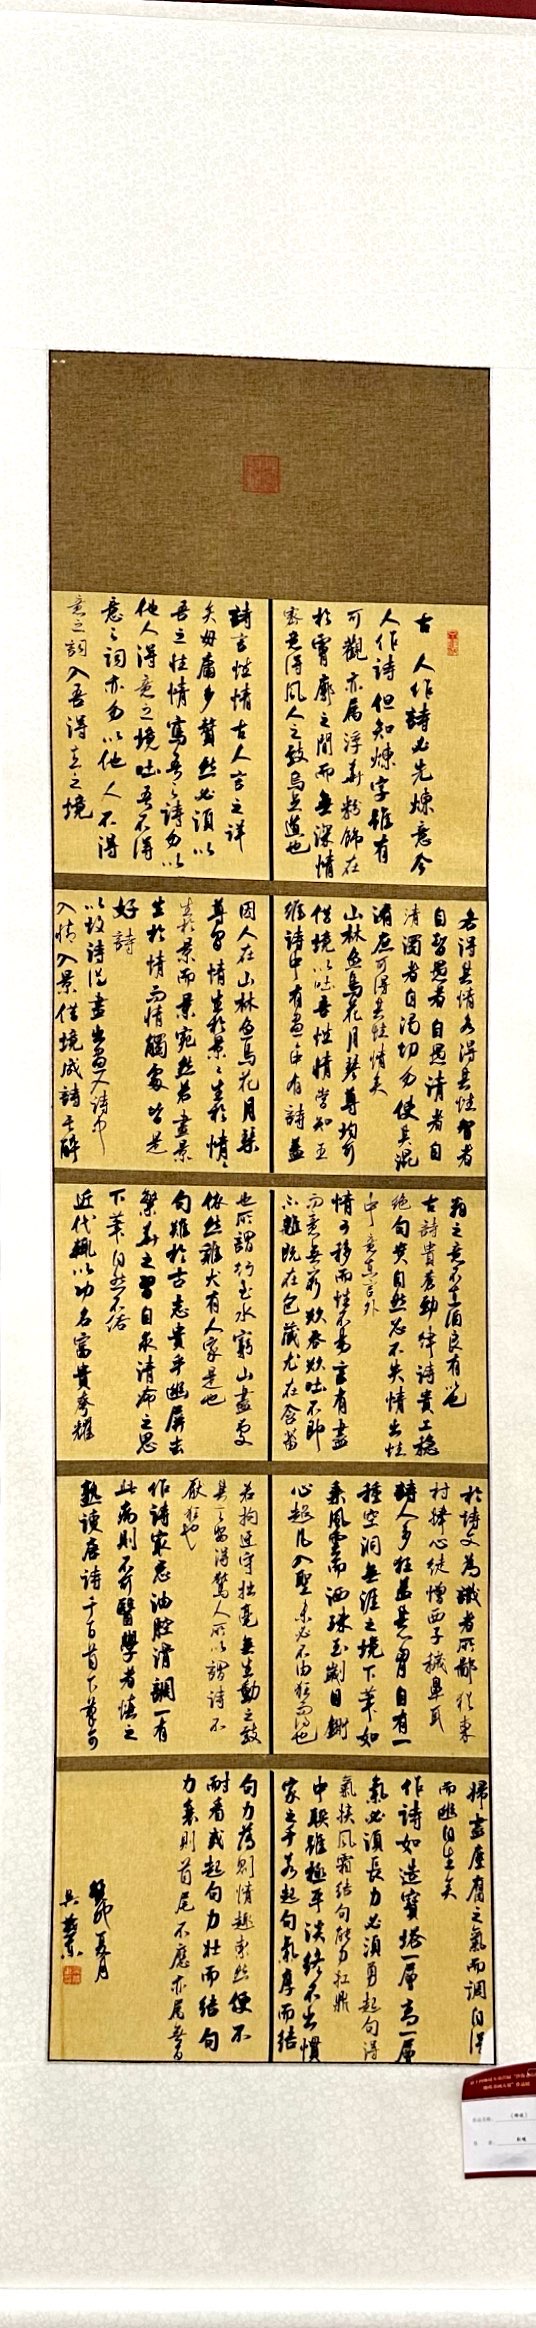 古人作詩必先煉意今
人作詩但知煉字雖有
可觀亦屬浮華粉飾在
於霄廓之間而無深情
家君得風人之致烏足道也
詩言性情古人言之詳
矣毋庸多贅然必須以
吾之性情寫吾之詩勿以
他人得意之境吐吾不得
意之詞亦勿以他人不得
意之詞入吾得意之境
各得其情各得其性智者
自智愚者自愚清者自
清濁者自濁切勿使其混
淆庶可得其性情矣
山林魚鳥花月琴尊均可
借境以吐吾性情常知王
維詩中有畫畫中有詩蓋
因人在山林魚鳥花月琴
尊則情生於景景生於情
生於景而景宛然若畫景
生於情而情觸處皆是
好詩
以致詩得盡出畫又詩中
入情入景借境成詩
翁之意不在酒良有以也
古詩貴蒼勁律詩貴工穩
絕句貴自然忽不失情出性
中意在言外
情可移而性不易言有盡
而意無窮欲吞欲吐不即
不離既在包藏尤在含蓄
也所謂行到水窮山盡處
依然雞犬有人家是也
句雖於古志貴乎幽屏去
繁華之習自求清冷之思
下筆自然不俗
近代輒以功名富貴夸耀
於詩文為識者所鄙猶東
村捧心徒憎西子穢鼻耳
詩人多狂蓋其胃自有一
種空洞無涯之境下筆如
乘風雲而洒珠玉劌目鉥
心超凡入聖未必不由狂而得也
若拘迂守拙毫無生動之致
其焉得驚人所以謂詩不
厭狂也
作詩最忌油腔滑調一有
此病則不可醫學者慎之
熟讀唐詩千百首下筆可
掃盡塵腐之氣而調自得
而幽自生矣
作詩如造寶塔一層高一層
氣必須長力必須勇起句得
氣挾風霜結句能力扛鼎
中联雖極平淡終不出慣
家之手若起句氣厚而結
句力薄則情趣索然便不
耐看或起句力壯而結句
力衰則首尾不應亦屬無
癸卯夏月